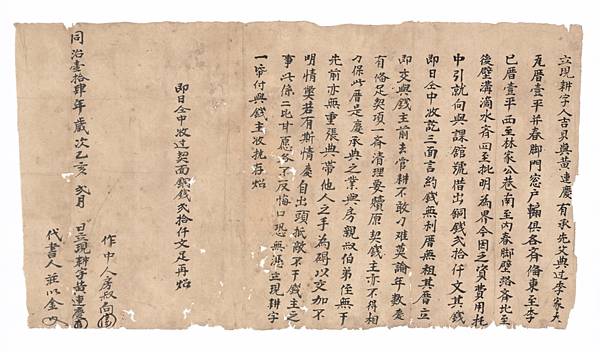 立現耕字人吉貝與黃連慶有承先父典过李家大
瓦厝壹平并春脚門窓戶輪俱各齊備東至李
已厝壹平西至林家公巷南至內春脚壁路齊北至
後壁溝滴水齊四至批明為界今因乏資費用托
中引就向與課館號借出銅錢弍拾仟文其錢
即日仝中收訖三面言約錢無利厝無租其厝立
即交與錢主前去管耕不敢刁难異論年數慶
有俻足契項一齊清理要贖原契錢主亦不得相
刁保此厝是慶承典之業與房親叔伯弟侄無干
先前亦無重張典帶他人之手為碍以交加不
明情獘若有斯情慶自出頭抵敵不干錢主之
事此係二比甘愿各不反悔口恐無憑立現耕字
一帋付與錢主收执存炤
即日仝中收过契面銅錢弍拾仟文足再炤
作中人房叔高
同治壹拾肆年歲次乙亥 弍月 日立現耕字黃連慶
代書人莊以金